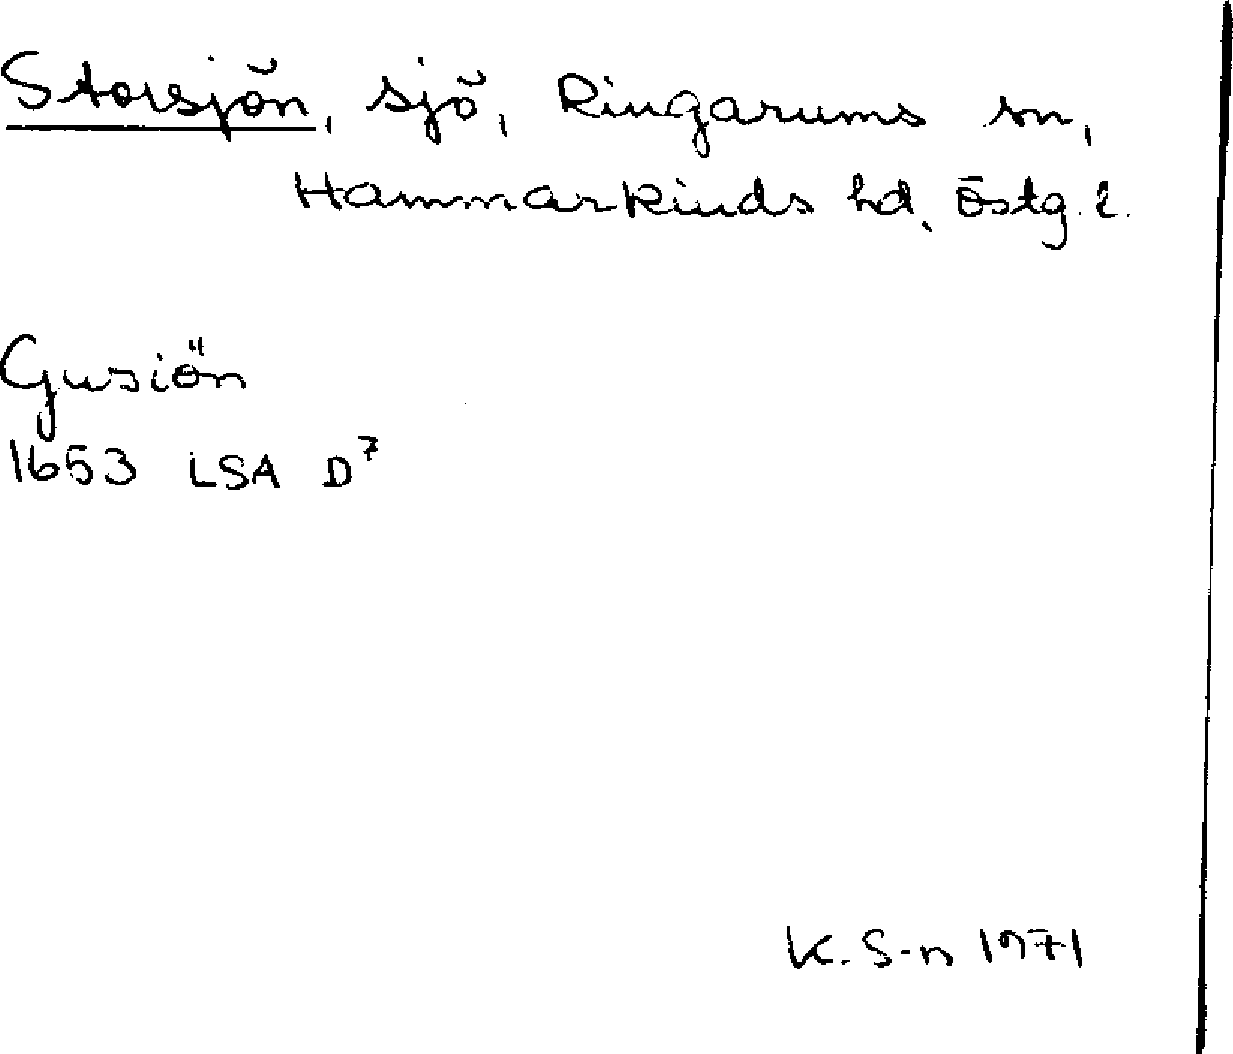 Storsjön, sjö, Ringarums sn,
Hammarkinds hd, Östg. l.
Gusiön
1653 LSA D⁷
K. S-n 1971